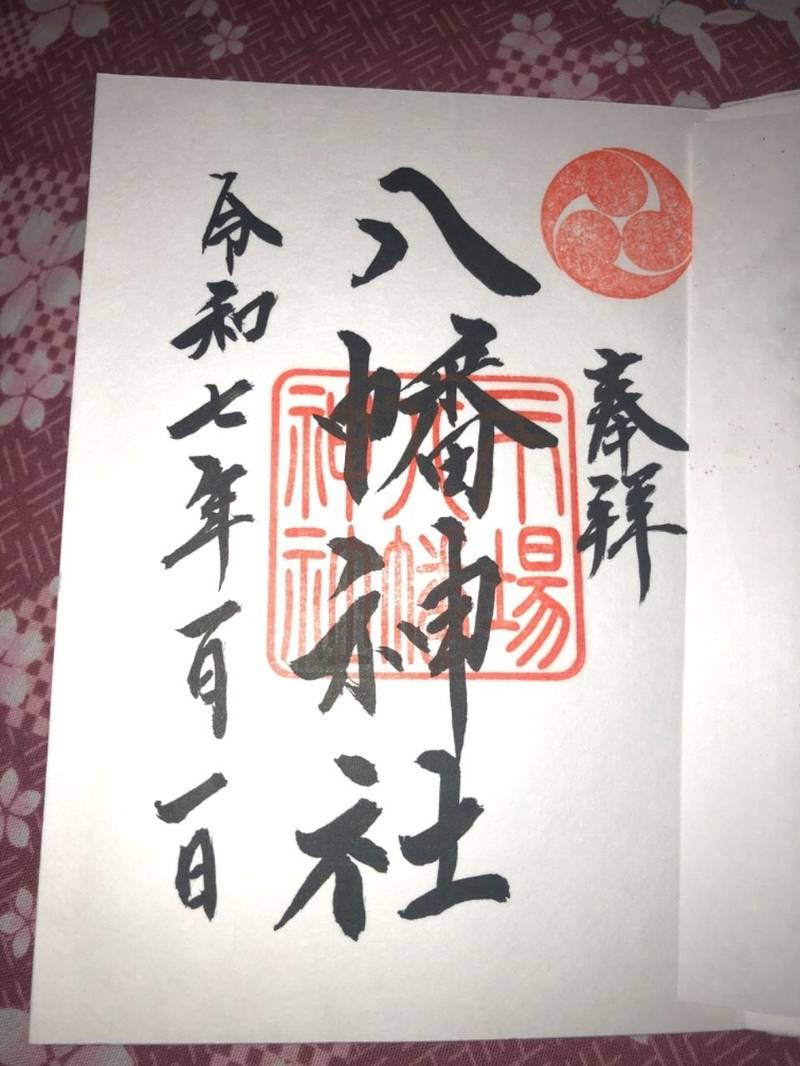 奉拝
八幡神社
場
八幡
神社
令和七年一月一日